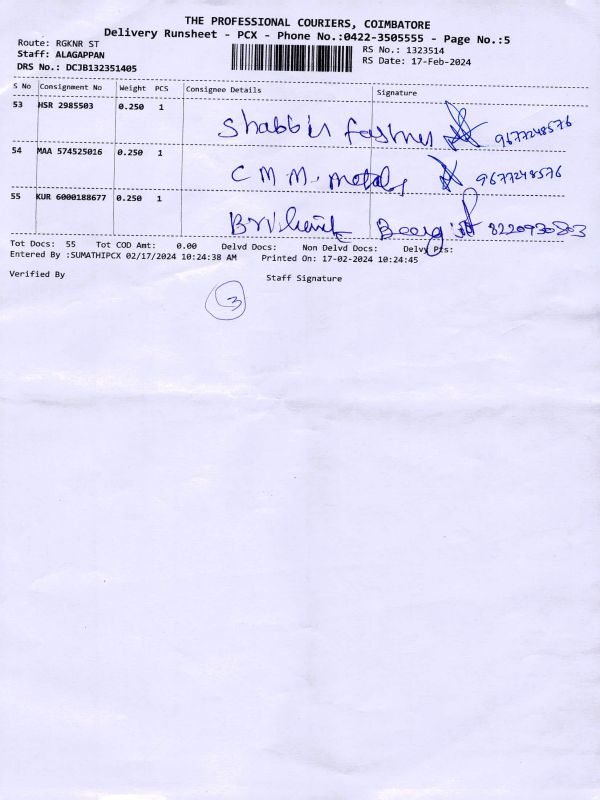 THE PROFESSIONAL COURIERS, COIMBATORE
Delivery Runsheet - PCX - Phone No.:0422-3505555 - Page No.:5
Route: RGKNR ST
RS No.: 1323514
Staff: ALAGAPPAN
RS Date: 17-Feb-2024
DRS No.: DCJB132351405
S No Consignment No Weight PCS Consignee Details Signature
53 HSR 2985503 0.250 1
Shabbir 9677248576
54 MAA 574525016 0.250 1
C M M. metals 9677248576
55 KUR 6000188677 0.250 1
8220930803
Tot Docs: 55 Tot COD Amt: 0.00 Delvd Docs: Non Delvd Docs: Delvy Pts:
Entered By :SUMATHIPCX 02/17/2024 10:24:38 AM Printed On: 17-02-2024 10:24:45
Verified By Staff Signature
3